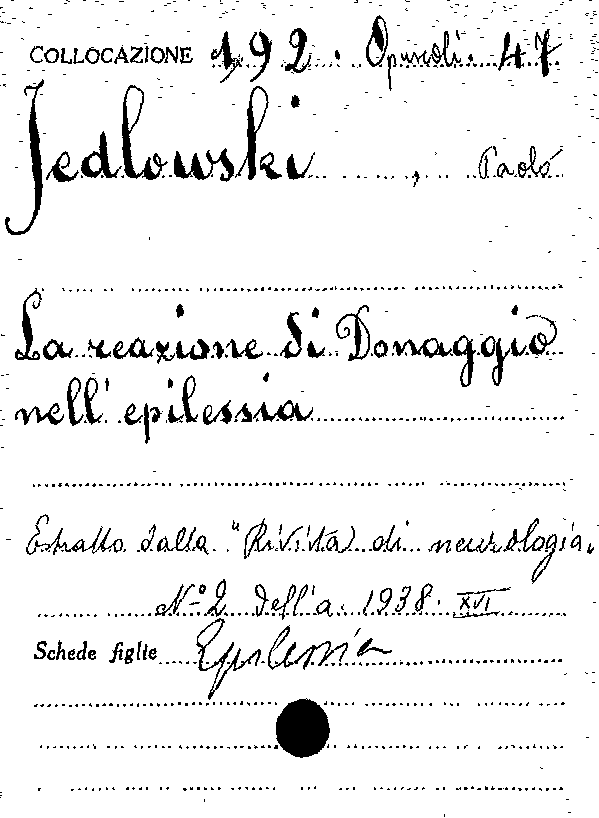 COLLOCAZIONE 192. Opuscoli. 47
Jedlowski, Paolo
La reazione di Donaggio
nell'epilessia
Estratto dalla "Rivista di neurologia"
N.º 2 dell'a. 1938. XVI
Schede figlie Epilessia